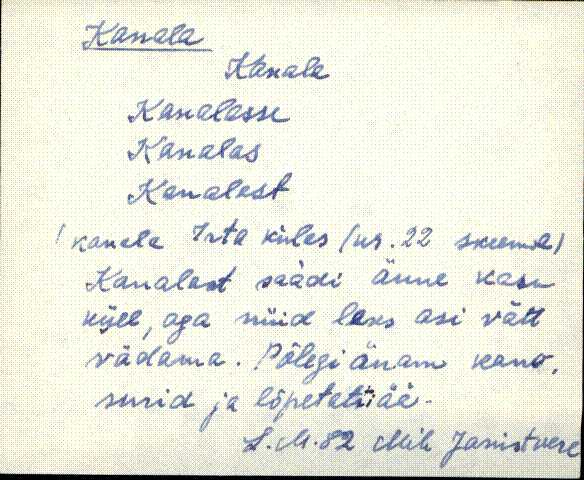 Kanala
Kanala
Kanalasse
Kanalas
Kanalast
/ kanala Irta külas (nr. 22 skeemil)
Kanalast saadi änne kasu
küll, aga nüid läks asi vätt
vädama. Põlegi änam kano,
surid ja lõpetati ää.
L.M.82 Mih Jamistvere